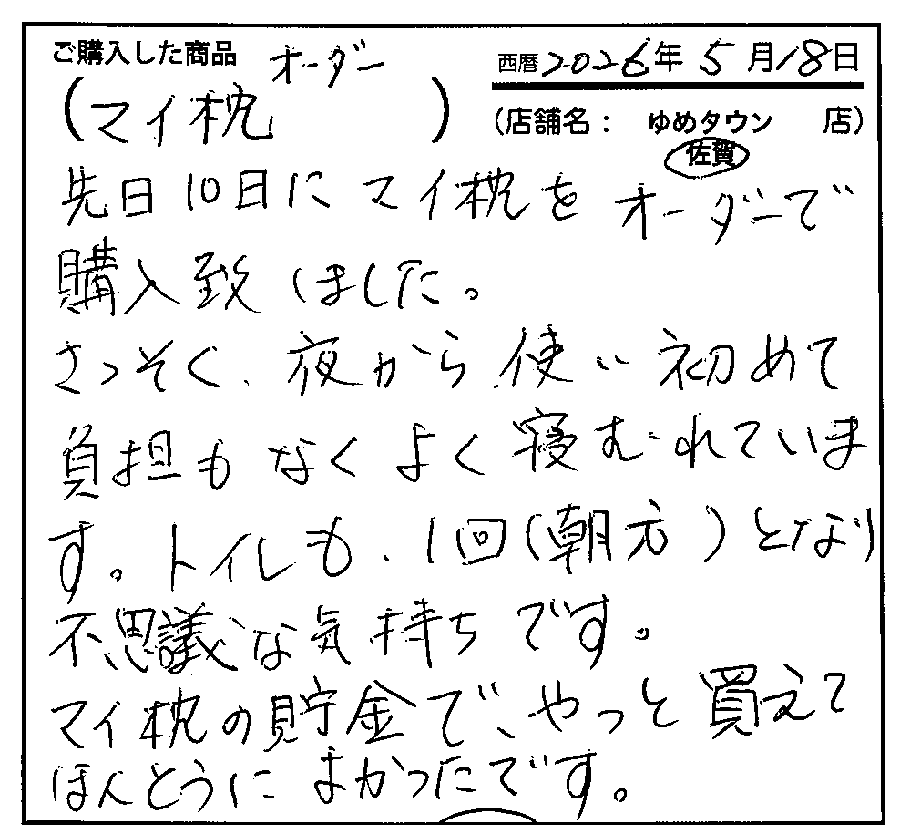 ご購入した商品 オーダー
(マイ枕)
西暦2026年5月18日
(店舗名: ゆめタウン 店)
佐賀
先日10日にマイ枕をオーダーで
購入致しました。
さっそく、夜から使い初めて
負担もなくよく寝むれていま
す。トイレも、1回(朝方)となり
不思議な気持ちです。
マイ枕の貯金で、やっと買えて
ほんとうによかったです。